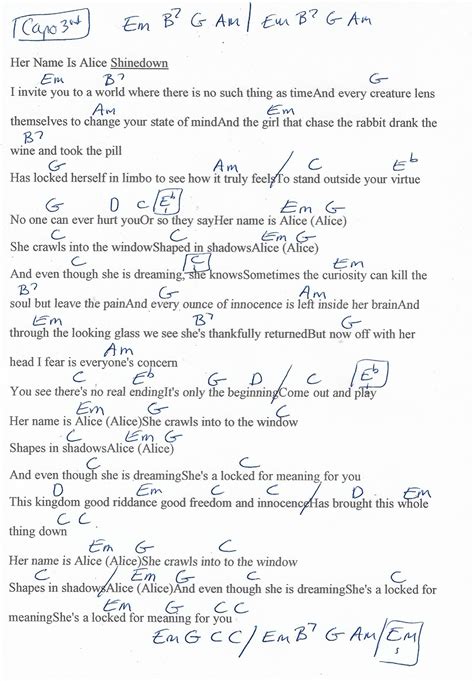 Capo 3rd Em B7 G Am / Em B7 G Am
Her Name Is Alice Shinedown
Em B7 G
I invite you to a world where there is no such thing as timeAnd every creature lens
Am Em
themselves to change your state of mindAnd the girl that chase the rabbit drank the
B7
wine and took the pill
G Am / C Eb
Has locked herself in limbo to see how it truly feelsTo stand outside your virtue
G D C Eb Em G
1
No one can ever hurt youOr so they sayHer name is Alice (Alice)
C C Em G
She crawls into the windowShaped in shadowsAlice (Alice)
C C Em
1
And even though she is dreaming, she knowsSometimes the curiosity can kill the
B7 G Am
soul but leave the painAnd every ounce of innocence is left inside her brainAnd
Em B7 G
through the looking glass we see she's thankfully returnedBut now off with her
Am
head I fear is everyone's concern
C Eb G D / C Eb
1
You see there's no real endingIt's only the beginningCome out and play
Em G C
Her name is Alice (Alice)She crawls into to the window
C Em G
Shapes in shadowsAlice (Alice)
C C
And even though she is dreamingShe's a locked for meaning for you
D Em C / D Em
This kingdom good riddance good freedom and innocenceHas brought this whole
C C
thing down
Em G C
Her name is Alice (Alice)She crawls into to the window
C Em G C
Shapes in shadowsAlice (Alice)And even though she is dreamingShe's a locked for
Em G C C
meaningShe's a locked for meaning for you
Em G C C / Em B7 G Am / Em